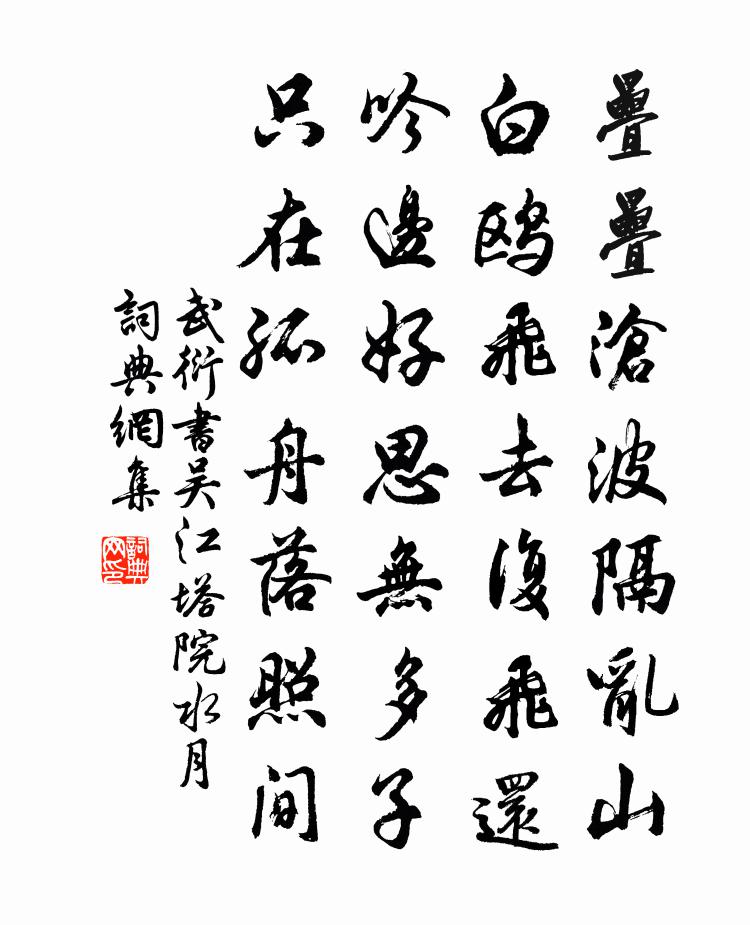 疊疊滄波隔亂山
白鸥飛去復飛還
吟邊好思無多子
只在孤舟落照間
武衍書吴江塔院水月
詞典網集
詞典網印